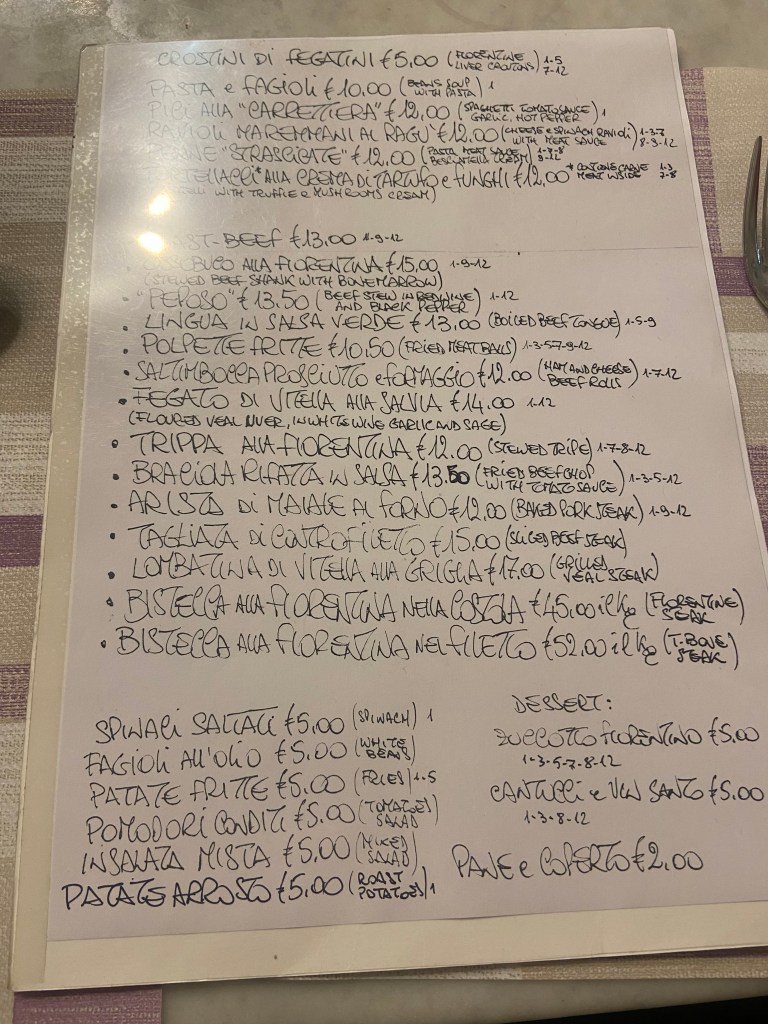 CROSTINI DI FEGATINI €5,00 (FLORENTINE LIVER CROUTONS) 1-5 7-12
PASTA e FAGIOLI €10.00 (BEANS SOUP WITH PASTA) 1
PICI ALLA "CARRETTIERA" €12,00 (SPAGHETTI TOMATO SAUCE GARLIC, HOT PEPPER) 1
RAVIOLI MAREMMANI AL RAGU' €12.00 (CHEESE e SPINACH RAVIOLI WITH MEAT SAUCE) 1-3-7 8-9-12
"STRASCICATE" €12,00 (PASTA MEAT SAUCE BESCIAMELLA CREAM)
ALLA CREMA DI TARTUFO e FUNGHI €12,00 * CONTIENE CARNE MEAT INSIDE 1-3 7-8
WITH TRUFFLE e MUSHROOMS CREAM)
ST-BEEF €13.00 1-9-12
OSSOBUCO ALLA FIORENTINA €15,00 1-9-12
(STEWED BEEF SHANK WITH BONE MARROW)
"PEPOSO" €13.50 (BEEF STEW IN RED WINE AND BLACK PEPPER) 1-12
• LINGUA IN SALSA VERDE €13,00 (BOILED BEEF TONGUE) 1-5-9
• POLPETTE FRITTE €10,50 (FRIED MEATBALLS) 1-3-5-7-9-12
• SALTIMBOCCA PROSCIUTTO e FORMAGGIO €12.00 (HAM AND CHEESE BEEF ROLLS) 1-7-12
• FEGATO DI VITELLA ALLA SALVIA €14.00 1-12
(FLOURED VEAL LIVER, IN WHITE WINE GARLIC AND SAGE)
• TRIPPA ALLA FIORENTINA €12.00 (STEWED TRIPE) 1-7-8-12
• BRACIOLA RIFATTA IN SALSA €13.50 (FRIED BEEF CHOP WITH TOMATO SAUCE) 1-3-5-12
• ARISTA DI MAIALE AL FORNO €12,00 (BAKED PORK STEAK) 1-9-12
• TAGLIATA DI CONTROFILETTO €15.00 (SLICED BEEF STEAK)
• LOMBATINA DI VITELLA ALLA GRIGLIA €17.00 (GRILLED VEAL STEAK)
• BISTECCA ALLA FIORENTINA NELLA COSTOLA €45,00 il Kg (FLORENTINE STEAK)
• BISTECCA ALLA FIORENTINA NEL FILETTO €52.00 il Kg (T-BONE STEAK)
SPINACI SALTATI €5,00 (SPINACH) 1
FAGIOLI ALL'OLIO €5.00 (WHITE BEANS)
PATATE FRITTE €5.00 (FRIES) 1-5
POMODORI CONDITI €5.00 (TOMATOES SALAD)
INSALATA MISTA €5.00 (MIXED SALAD)
PATATE ARROSTO €5.00 (ROAST POTATOES) 1
DESSERT:
ZUCCOTTO FIORENTINO €5.00
1-3-5-7-8-12
CANTUCCI e VIN SANTO €5.00
1-3-8-12
PANE e COPERTO €2,00